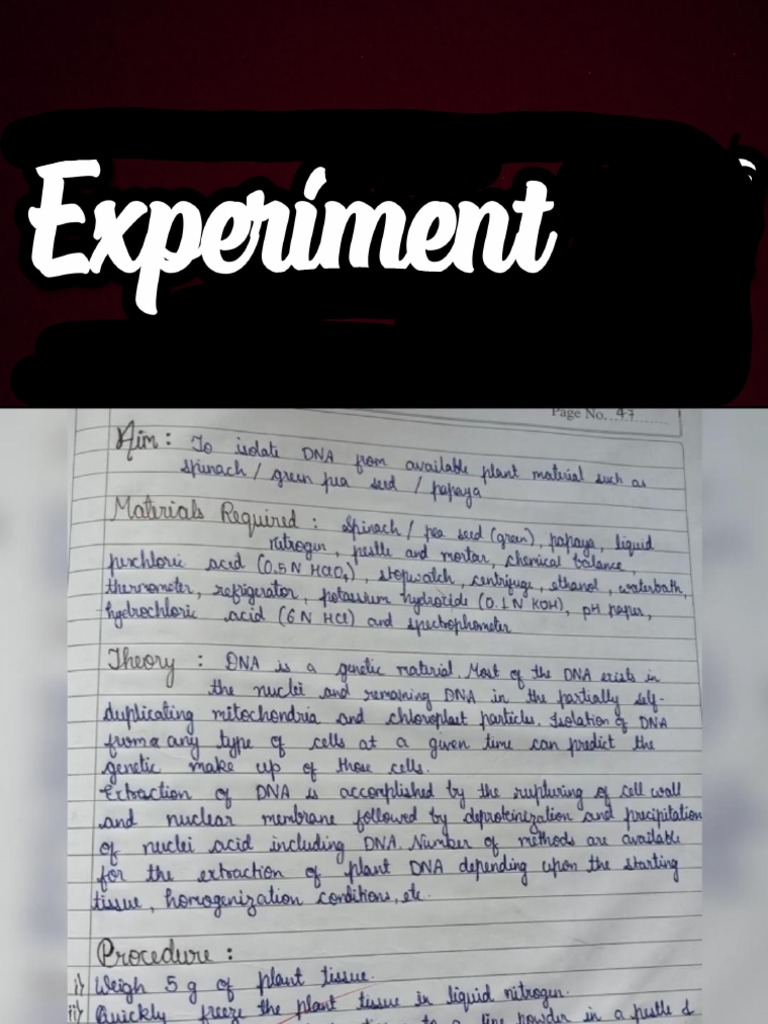 Experiment
Page No. 47
Aim : To isolate DNA from available plant material such as
spinach / green pea seed / papaya
Materials Required : spinach / pea seed (green), papaya, liquid
nitrogen, pestle and mortar, chemical balance,
perchloric acid (0.5 N HClO4), stopwatch, centrifuge, ethanol, waterbath,
thermometer, refrigerator, potassium hydroxide (0.1 N KOH), pH paper,
hydrochloric acid (6 N HCl) and spectrophometer
Theory : DNA is a genetic material. Most of the DNA exists in
the nuclei and remaining DNA in the partially self-
duplicating mitochondria and chloroplast particles. Isolation of DNA
from any type of cells at a given time can predict the
genetic make up of those cells.
Extraction of DNA is accomplished by the rupturing of cell wall
and nuclear membrane followed by deproteinization and precipitation
of nuclei acid including DNA. Number of methods are available
for the extraction of plant DNA depending upon the starting
tissue, homogenization conditions, etc.
Procedure :
i) Weigh 5 g of plant tissue.
ii) Quickly freeze the plant tissue in liquid nitrogen.
to a fine powder in a pestle &